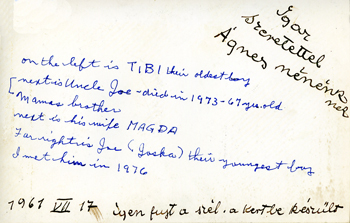 Ígar
szeretettel
Ágnes néném
nek
on the left is TIBI their oldest boy
[next is Uncle Joe - died in 1973 - 67 yrs. old
Mamas brother
next is his wife MAGDA
Far right is Joe (Joska) their youngest boy
I met him in 1976
1961 VII 17 igen fujt a szél. a kertbe készült